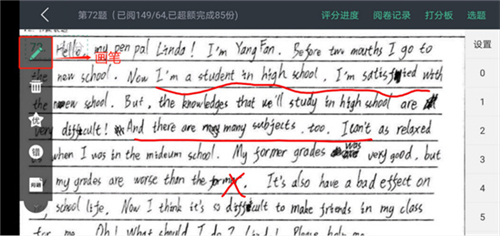 第72题（已阅149/64,已超额完成85份）
评分进度 阅卷记录 打分板 选题
画笔
设置
0
1
2
3
4
5
优
错
Hello, my pen pal Linda! I'm Yang Fan. Before two mouths I go to
the new school. Now I'm a student in high school. I'm satisfied with
the new school. But, the knowledges that we'll study in high school are
very difficult! And there are many subjects, too. I can't as relaxed
when I was in the mideum school. My former grades was very good, but
my grades are worse than the former. It's also have a bad effect on
school life. Now I think it's difficult to make friends in my class
for me. Oh! What should I do? Linda! Please help me